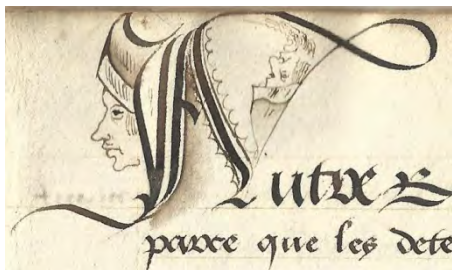 Autre
parce que les dete